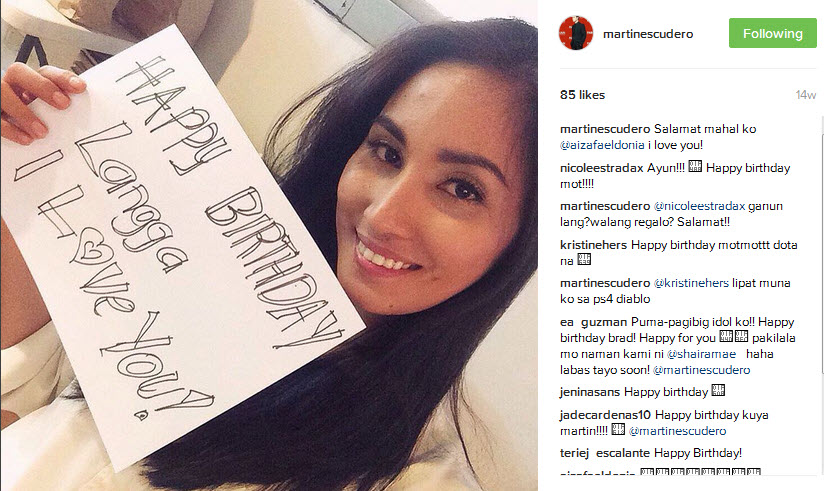 HAPPY BIRTHDAY
Langga
I LOVE YOU!
martinescudero
Following
85 likes
14w
martinescudero Salamat mahal ko
@aizafaeldonia i love you!
nicoleestradax Ayun!!! Happy birthday
mot!!!!
martinescudero @nicoleestradax ganun
lang?walang regalo? Salamat!!
kristinehers Happy birthday motmottt dota
na
martinescudero @kristinehers lipat muna
ko sa ps4 diablo
ea guzman Puma-pagibig idol ko!! Happy
birthday brad! Happy for you pakilala
mo naman kami ni @shairamae haha
labas tayo soon! @martinescudero
jeninasans Happy birthday
jadecardenas10 Happy birthday kuya
martin!!!! @martinescudero
teriej escalante Happy Birthday!